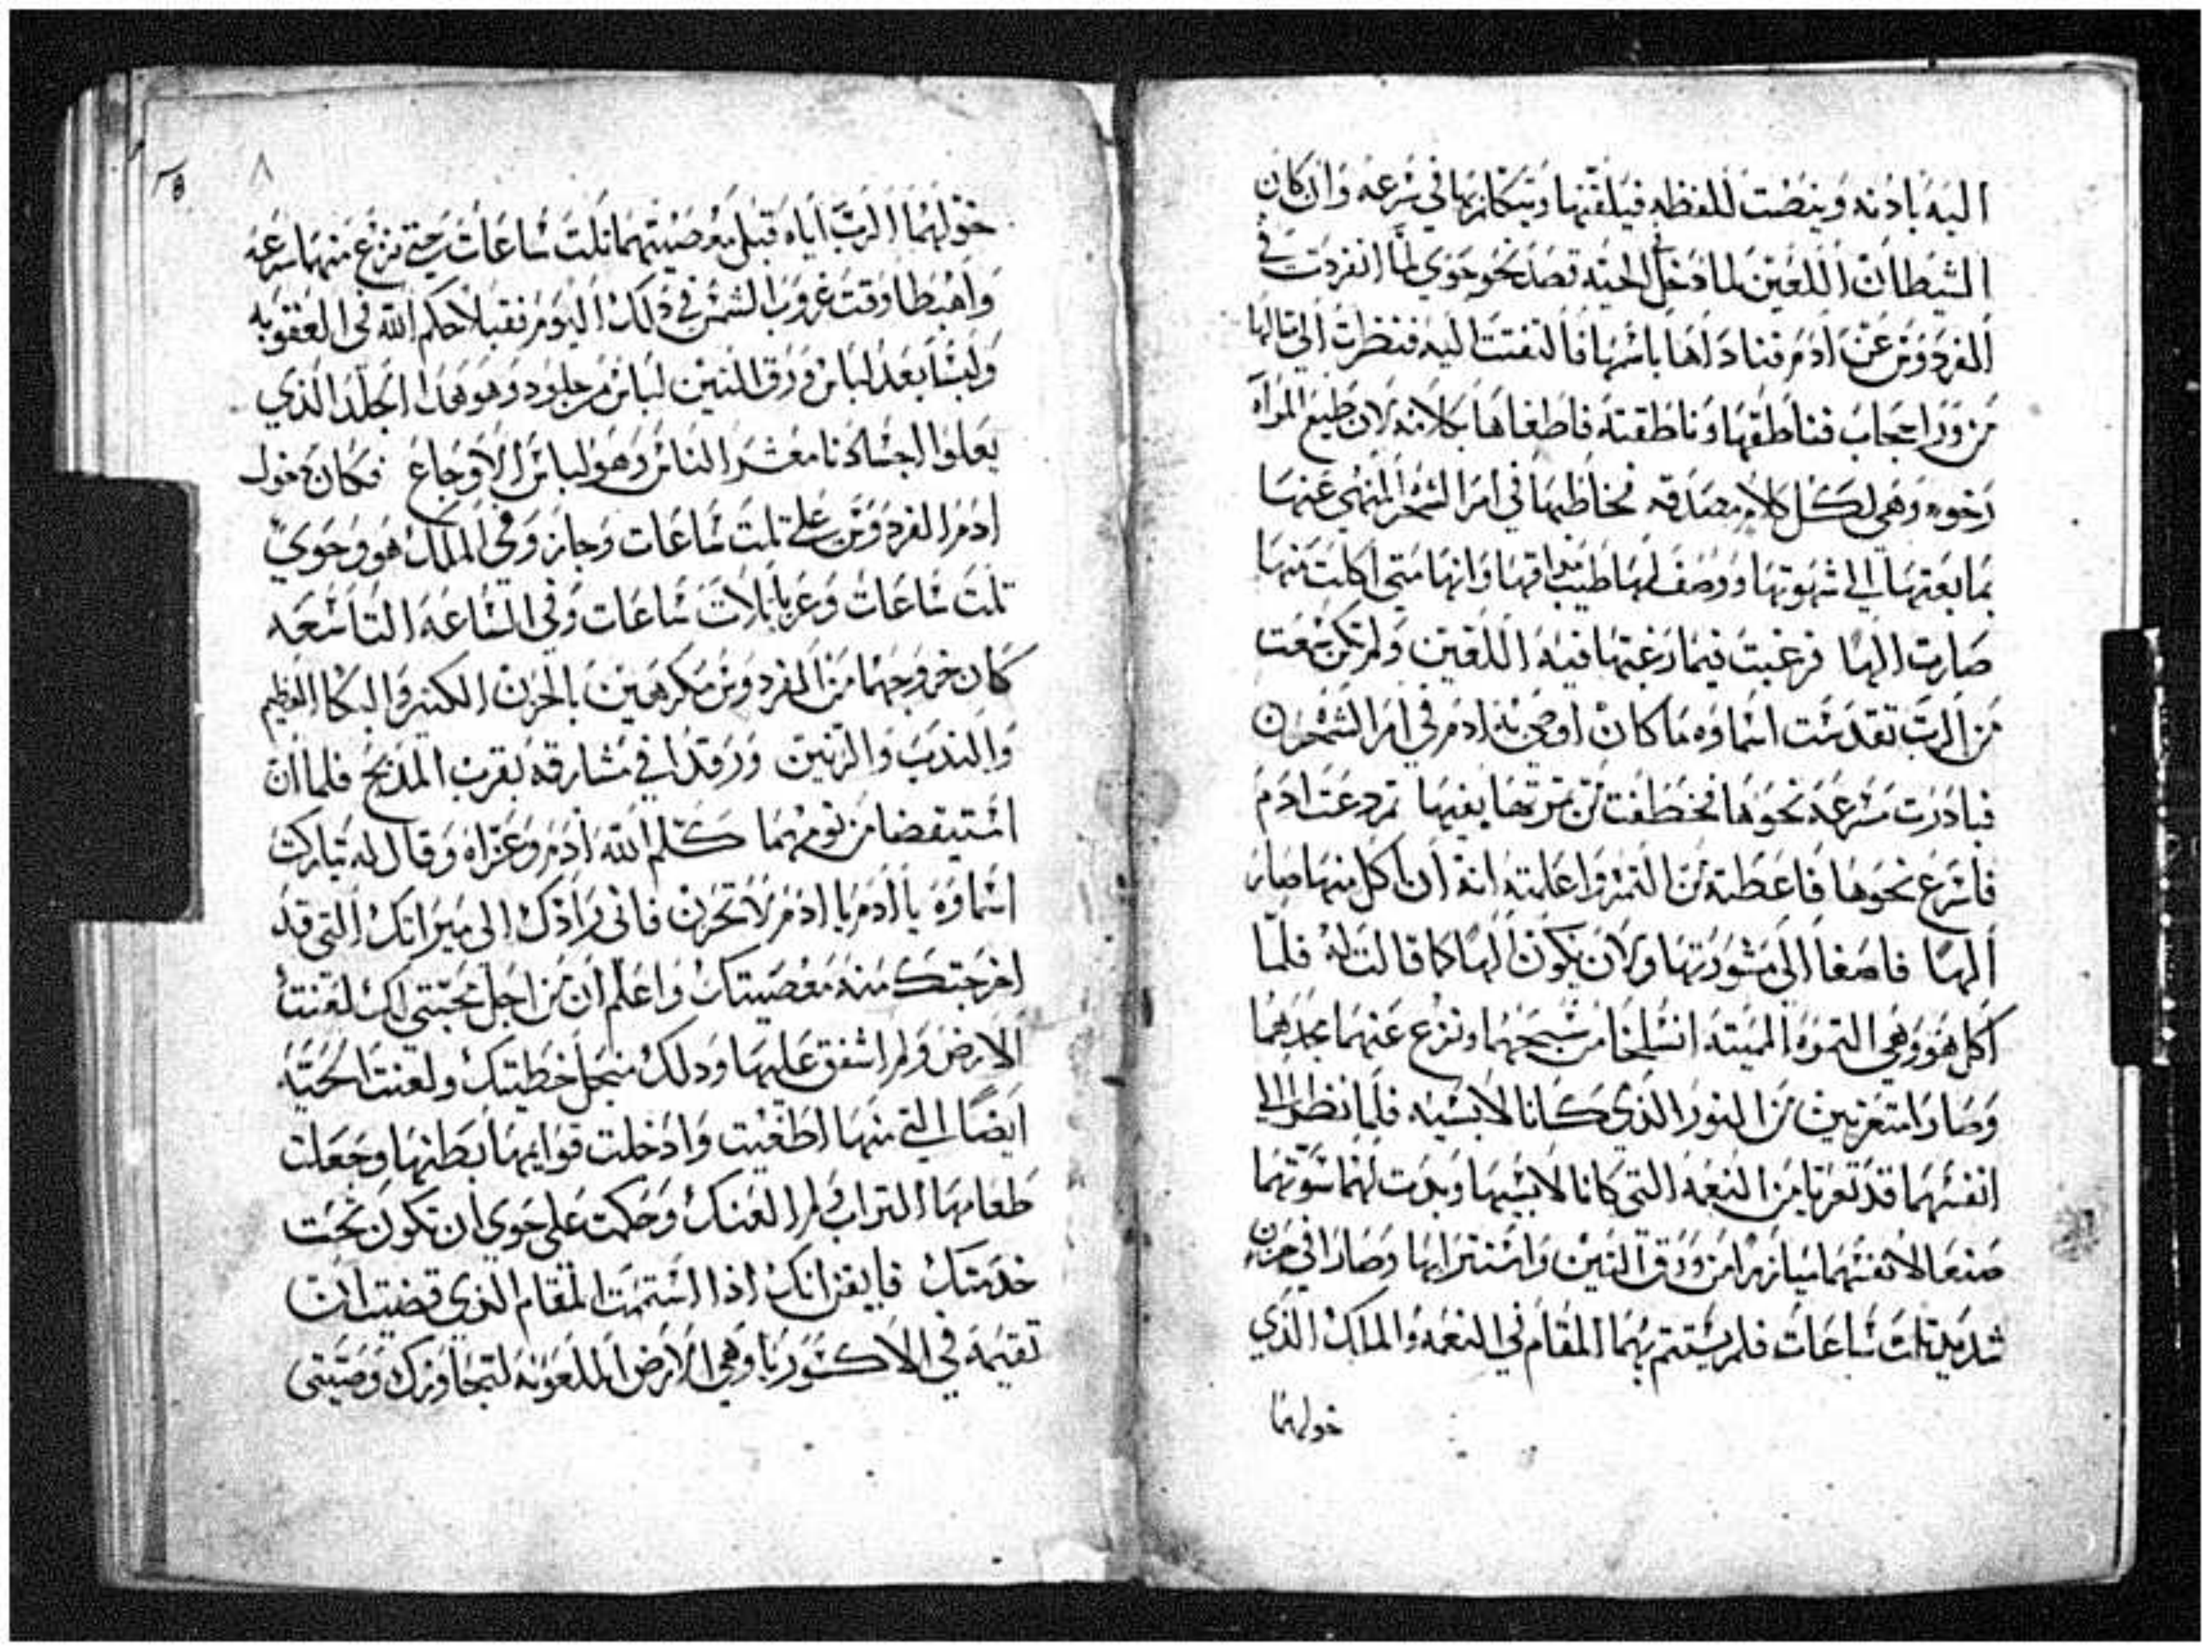 اليه بادنه وينضت للفظه فيلقنها ويتكلم بها في سرعه وان كان
الشيطان اللعين لما دخل الحيه قصد نحو حوي لما انفردت في
الفردوس عن ادم فناداها باسمها فالتفتت اليه فنظرت الي مثالها
من ورا حجاب فناطقها وناطقته فاطغاها بكلامه لان طبع المراه
رخوه وهي لكل كلام مصدقه فخاطبها في امر الشجر المنهي عنها
بما بعتها الي شهوتها ووصف لها طيب مداقها وانها متي اكلت منها
صارت الها فرغبت فيما رغبها فيه اللعين ولم تكن سمعت
من الرب تقدست اسماوه ما كان اوصي به ادم في امر الشجره
فبادرت مسرعه نحوها فخطفت من تمرتها بفيها تم دعت ادم
فاسرع نحوها فاعطته من التمر واعلمته انه ان اكل منها صار
الها فاصغا الي مشورتها ولان يكون الها كما قالت له فلما
اكل هو وهي التمره المميته انسلخا من سبحهما ونزع عنهما مجدهما
وصارا متعريين من النور الذي كانا لابسيه فلما نظرا الي
انفسهما قد تعريا من النعمه التي كانا لابسيها وبدت لهما سوتهما
صنعا لانفسهما ميازرا من ورق التين واستترا بها وصارا في حزن
شديد تلت ساعات فلم يستتم بهما المقام في النعمه والملك الذي
خولهما
٨
خولهما الرب اياه قبل معصيتهما تلت ساعات حتي نزع منهما سرعه
واهبطا وقت غروب الشمس في دلك اليوم فقبلا حكم الله في العقوبه
ولبسا بعد لباس ورق التين لباس من جلود وهو هدا الجلد الذي
يعلوا اجسادنا معشر الناس وهو لباس الاوجاع فكان دخول
ادم الفردوس علي تلت ساعات وجاز وفي الملك هو وحوي
تلت ساعات وعريا تلات ساعات وفي الساعه التاسعه
كان خروجهما من الفردوس مكرهين بالحزن الكتير والبكا العظيم
والندب والرنين ورقدا في مشارقه بقرب المدبح فلما ان
استيقضا من نومهما كلم الله ادم وعزاه وقال له تباركت
اسماوه يا ادم يا ادم لا تحزن فاني رادك الي ميراتك التي قد
اخرجتك منه معصيتك واعلم ان من اجل محبتي لك لعنت
الارض ولم اشفق عليها ودلك منجل خطيتك ولعنت الحيه
ايضا التي منها اطغيت وادخلت قوايمها بطنها وجعلت
طعامها التراب ولم العنك وحكمت علي حوي ان تكون تحت
خدمتك فايقن انك اذا استتممت المقام الذي قضيت ان
تقيمه في الارض الملعونه لتجاوزك وصيتي